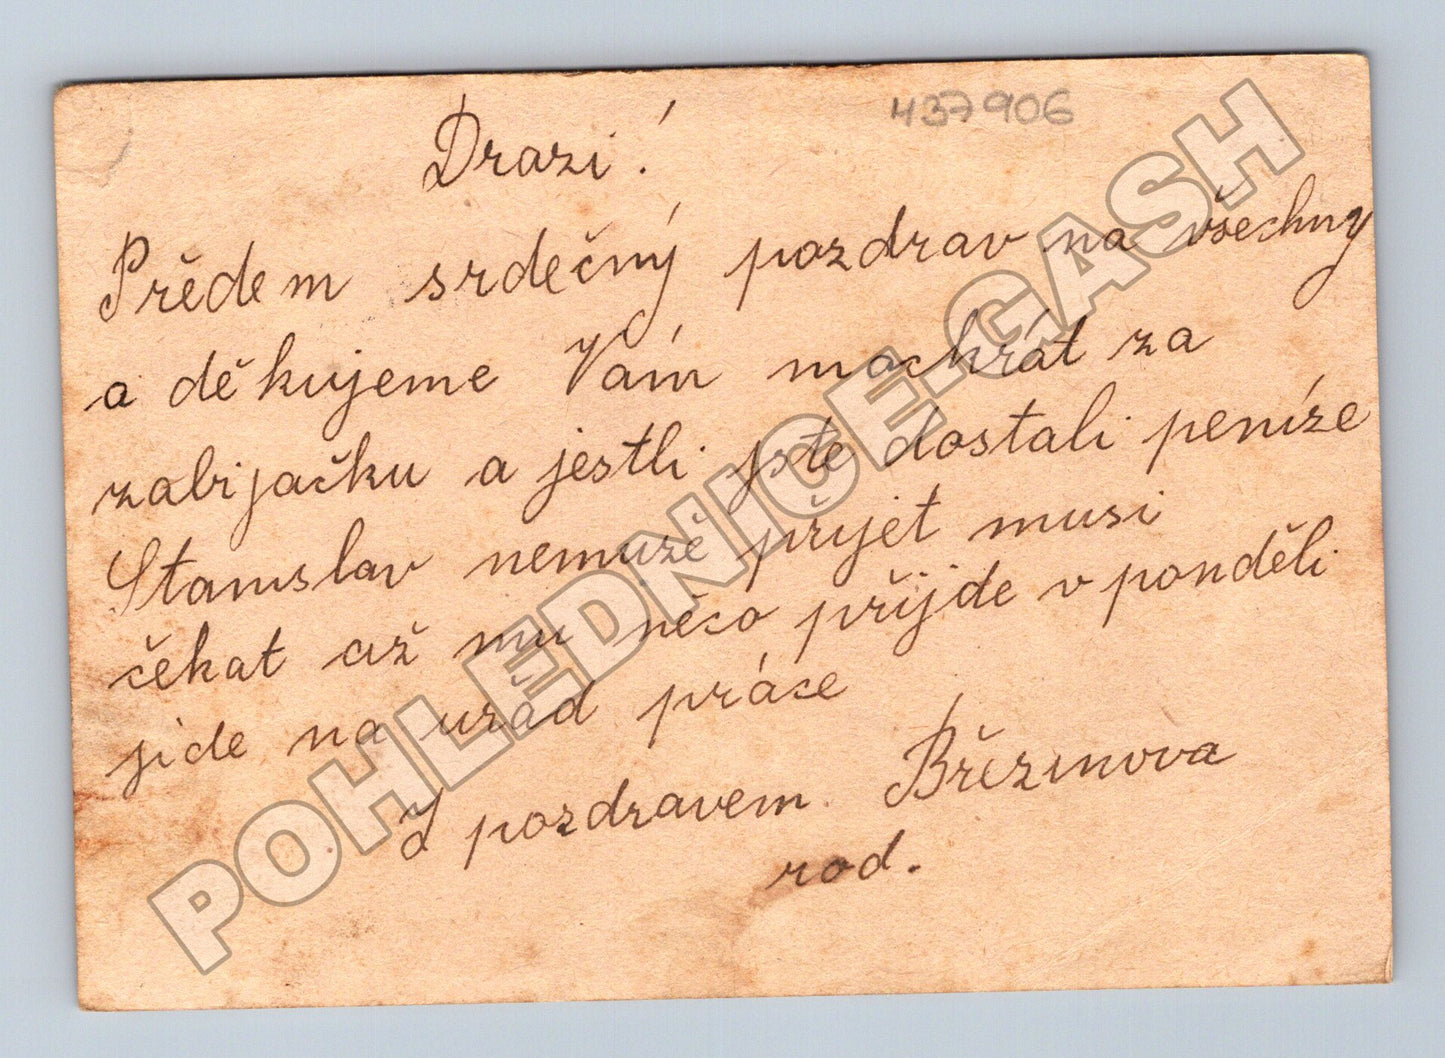 437906
Drazi!
Předem srdečný pozdrav na všechny
a děkujeme Vám mockrát za
zabijačku a jestli jste dostali peníze
Stanislav nemuže přijet musi
čekat až mu něco přijde v ponděli
jide na uřád práce
Z pozdravem Březinova
rod.
POHLEDNICE-GASH